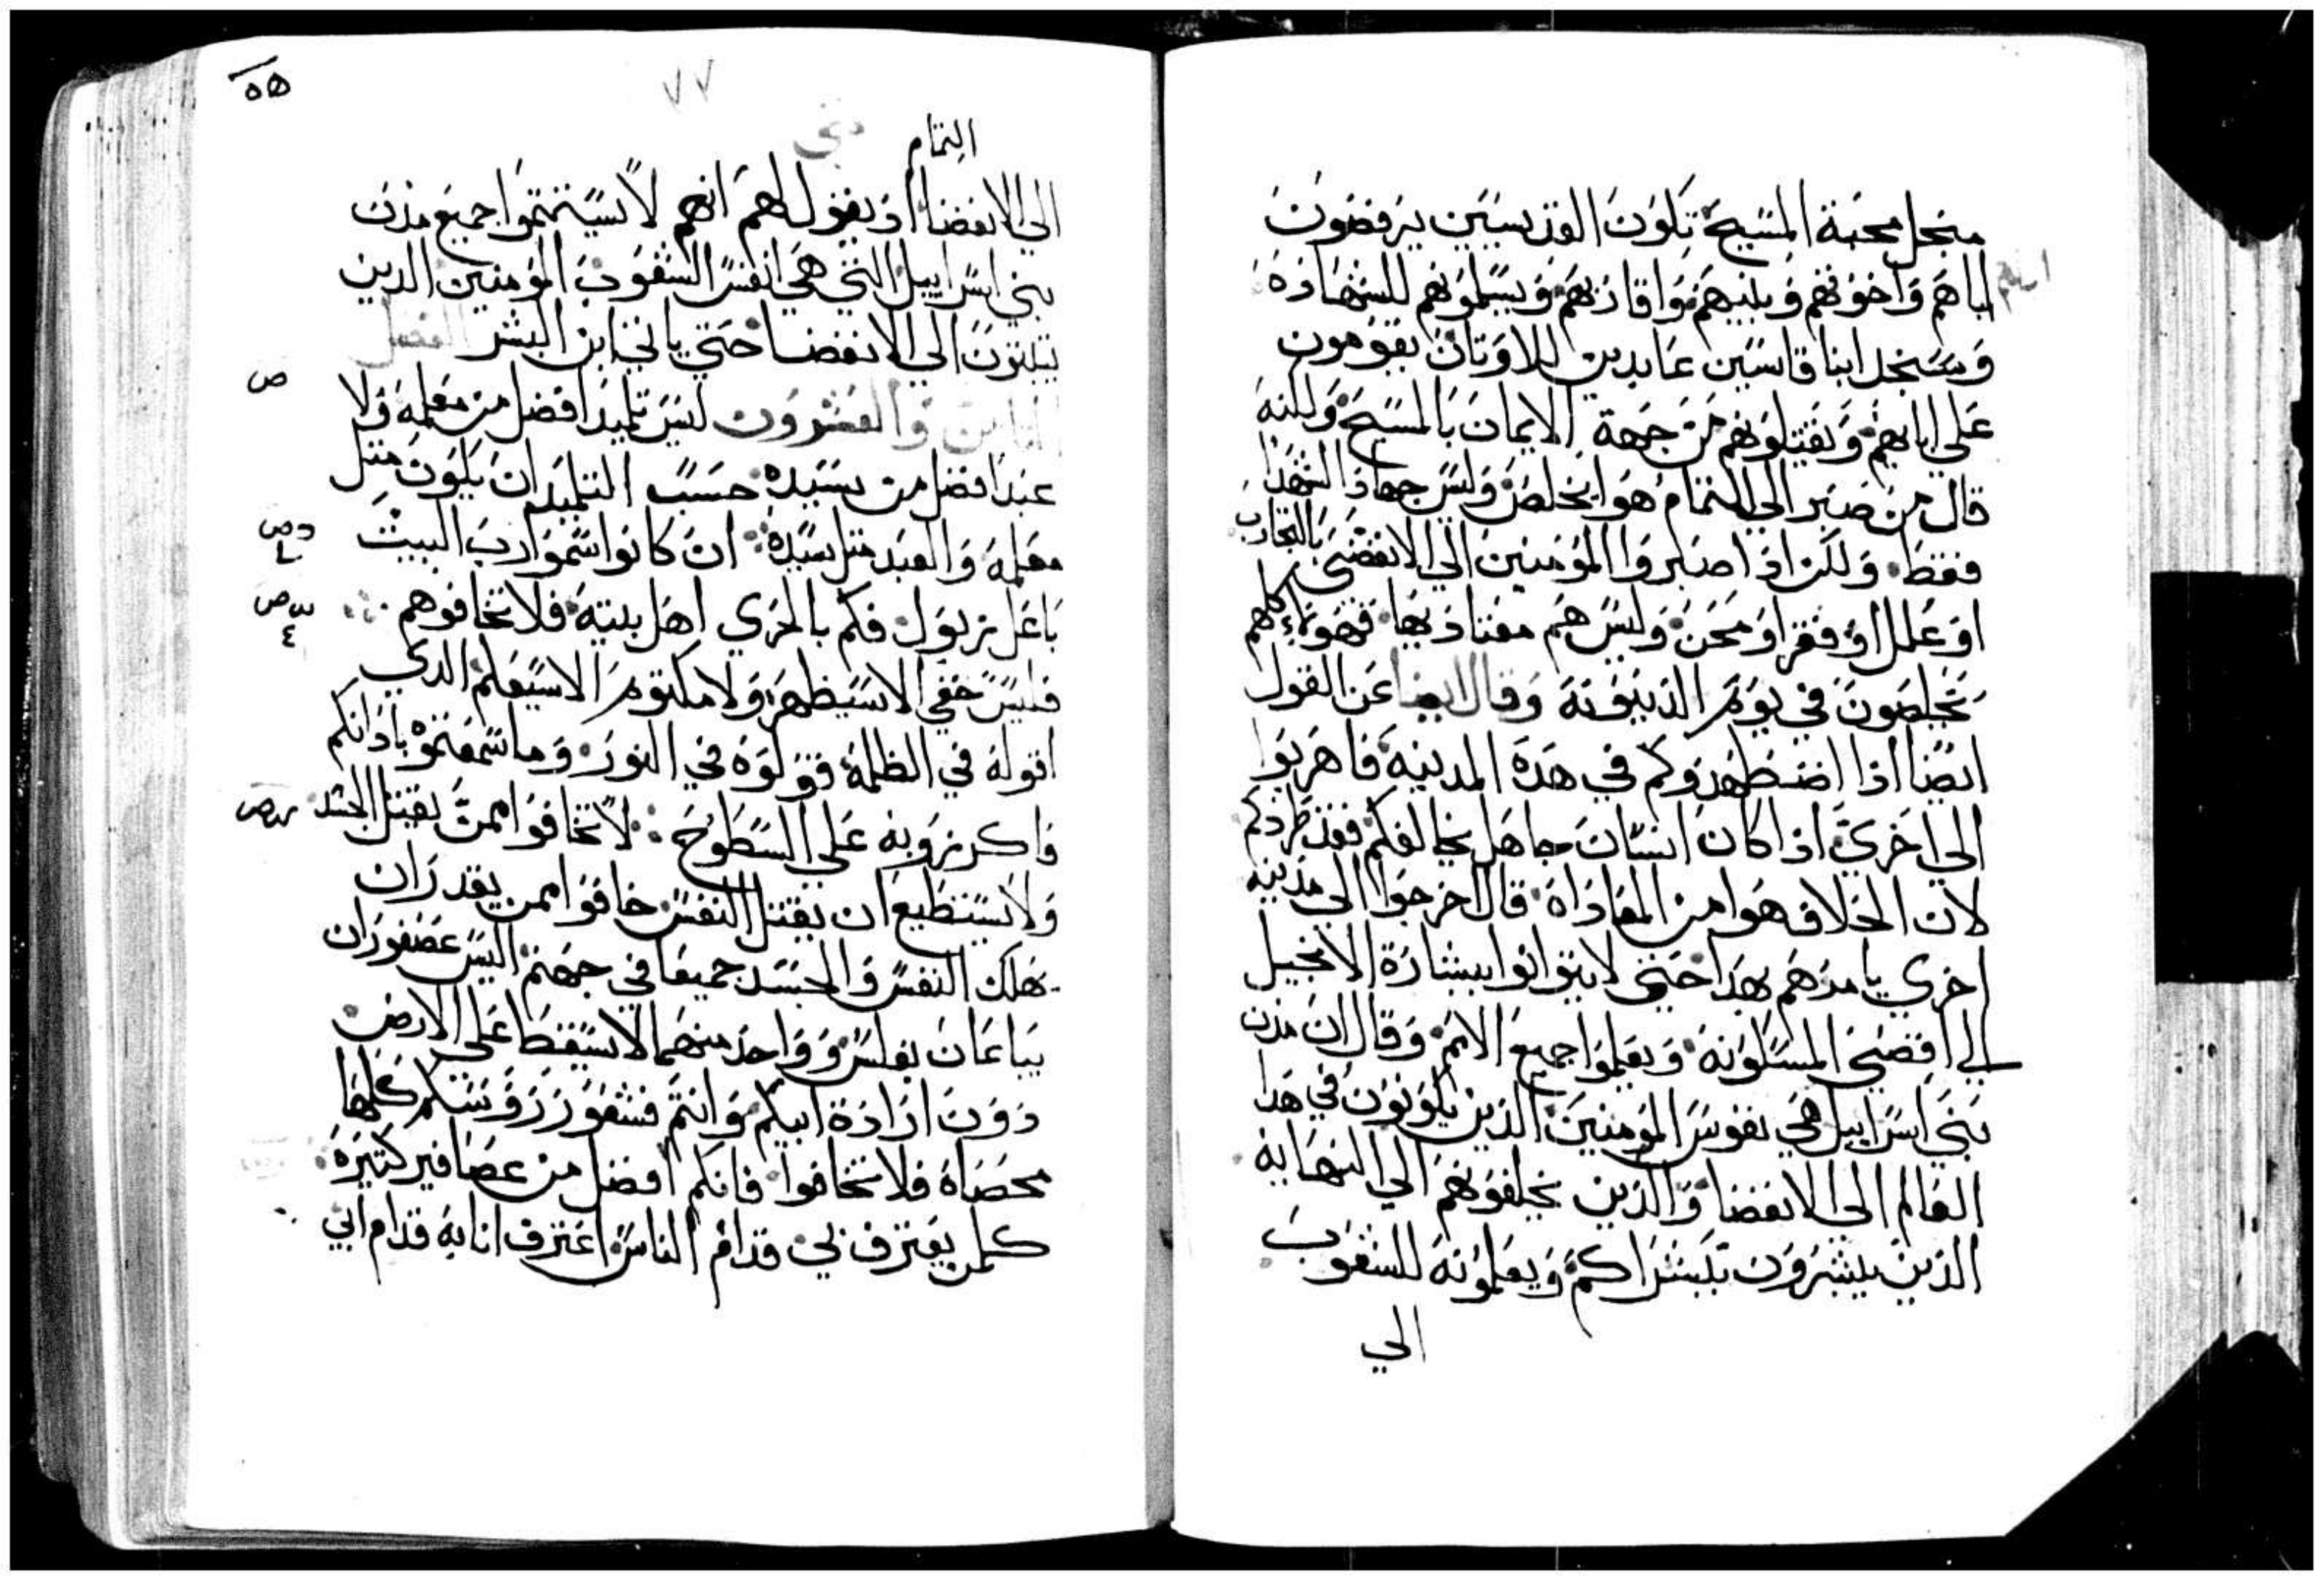 منجل محبة المسيح تكون القديسين يرفضون
اباهم واخوتهم وبنيهم واقاربهم ويسلمونهم للشهادة
وسنجل ابنا قاسيين عابدين للاوتان يقومون
علي ابايهم ويقتلونهم من جهة الايمان بالمسيح ولكنه
قال من صبر الي التمام هوا يخلص وليس جهاد الشهدا
فقط ولكن اذا اصبروا المؤمنين الي الانقضي بالتجارب
او علل او فقر او محن وليس هم معتاد بها فهولاء كلهم
يخلصون في يوم الدينونة وقال ايضا عن القول
ايضا اذا اضطهدوكم في هده المدينة فاهربوا
الي اخري اذا كان انسان جاهل يخالفكم فقد طردكم
لان الخلاف هوا من المعاداة قال اخرجوا الي مدينه
اخري يامرهم بهدا حتى لا يتوانوا ببشارة الانجيل
الي اقصى المسكونة ويعلموا جميع الامم وقال ان مدن
بني اسراييل هي نفوس المومنين الدين يكونون في هدا
العالم الي الانقضا والدين يخلفونهم الي النهايه
الدين يبشرون ببشراكم ويعلمونه للشعوب
الي
٥٥
٧٧
التمام
الي الانقضا اذ يقول لهم انهم لا يستتموا جميع مدن
بني اسراييل التي هي انفس الشعوب المومنين الدين
يثبتون الي الانقضا حتي ياتي ابن البشر الفصل
الثامن والعشرون ليس تلميد افضل من معلمه ولا
عبد افضل من سيده حسب التلميد ان يكون متل
معلمه والعبد متل سيده ان كانوا سموا رب البيت
باعل زبول فكم بالحري اهل بيته فلا تخافوهم
فليس خفي الا سيظهر ولا مكتوم الا سيعلم الدي
اقوله في الظلمة قولوه في النور وما سمعتموه باذانكم
فاكرزوا به علي السطوح لا تخافوا ممن يقتل الجسد
ولا يستطيع ان يقتل النفس خافوا ممن يقدر ان
يهلك النفس والجسد جميعا في جهنم اليس عصفوران
يباعان بفلس وواحد منهما لا يسقط علي الارض
دون ارادة ابيكم وانتم فشعور روسكم كلها
محصاة فلا تخافوا فانكم افضل من عصافير كتيرة
كلمن يعترف بي قدام الناس اعترف انا به قدام ابي